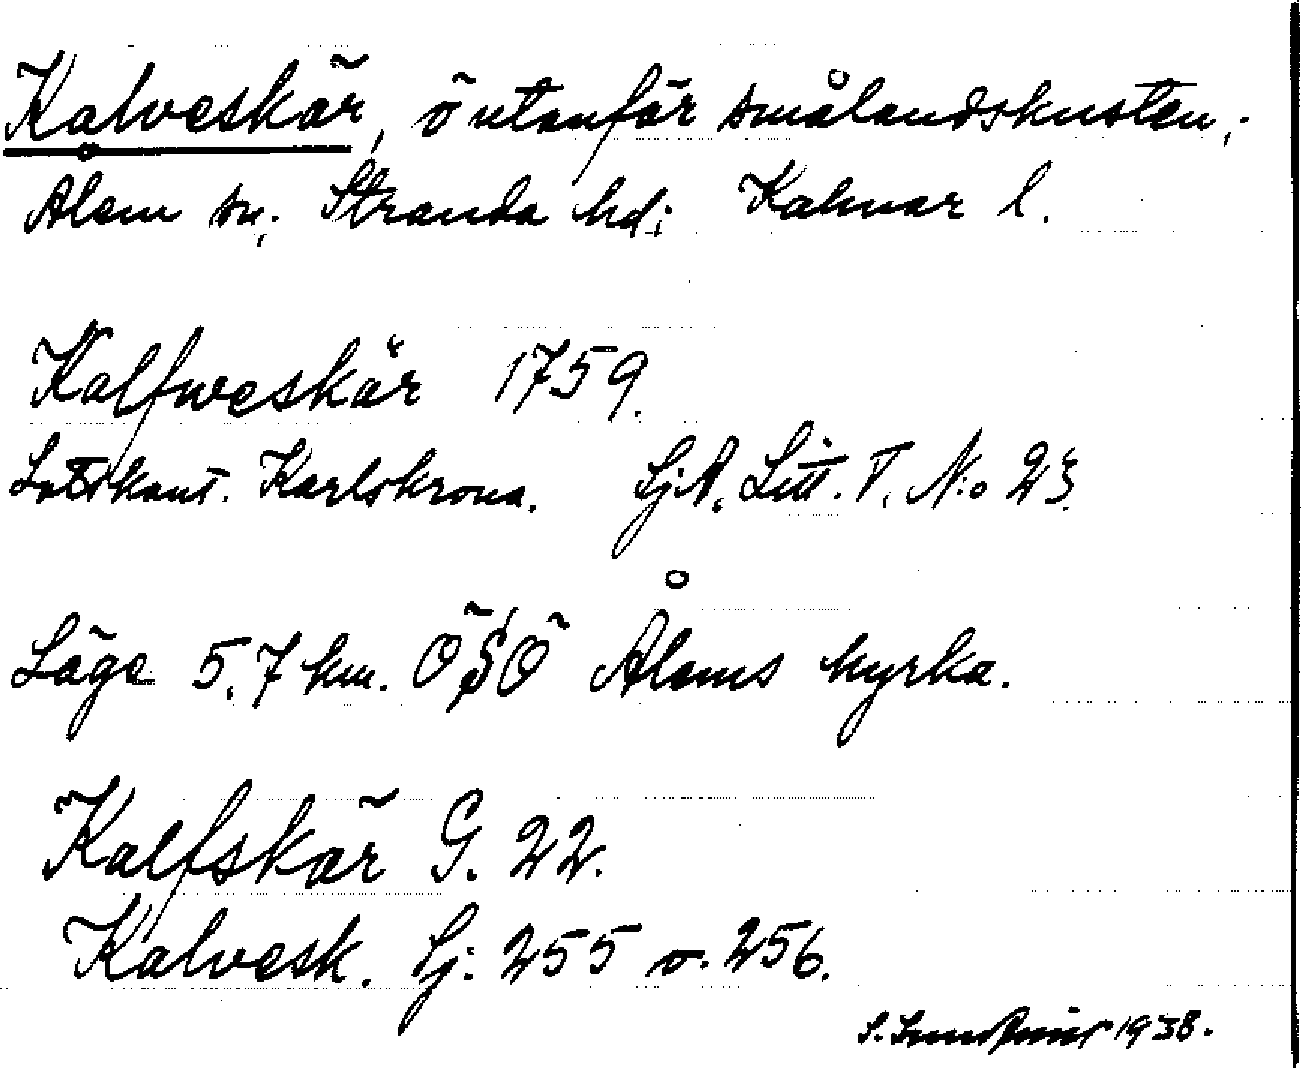 Kalveskär, ö utanför smålandskusten,
Ålem sn; Stranda hd; Kalmar l.
Kalfweskär 1759.
Lotskont. Karlskrona. Sj.A. Litt. T. N:o 23.
Läge 5,7 km. ÖSÖ Ålems kyrka.
Kalfskär G. 22.
Kalvesk. Sj. 255 o. 256.
S. 1938.